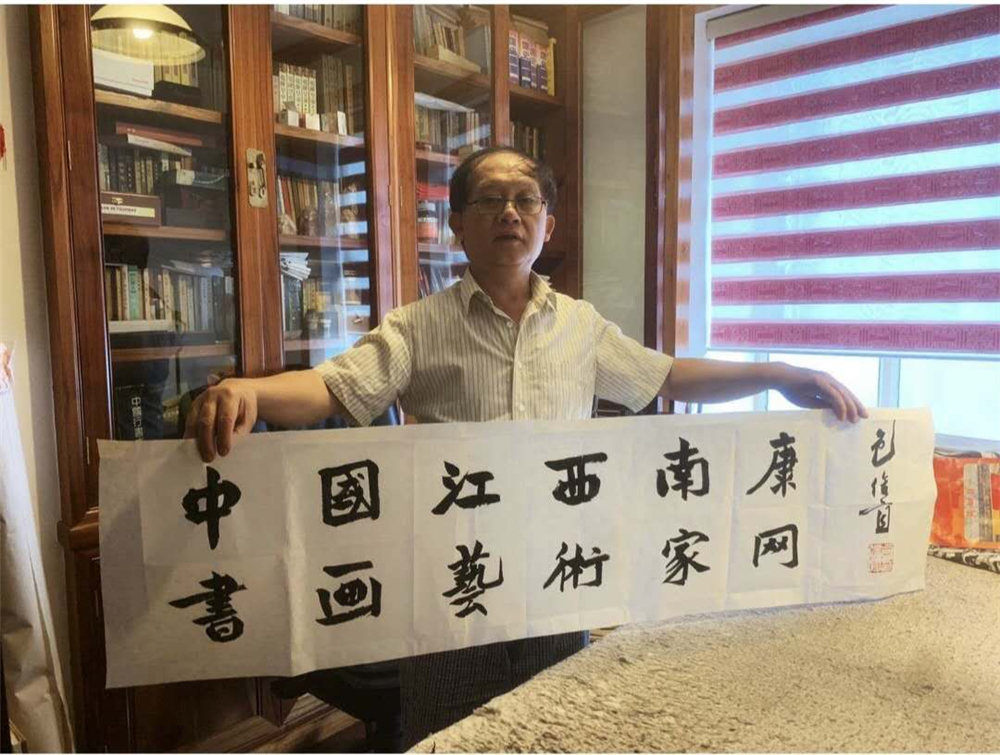 中國江西南康
書画藝術家网